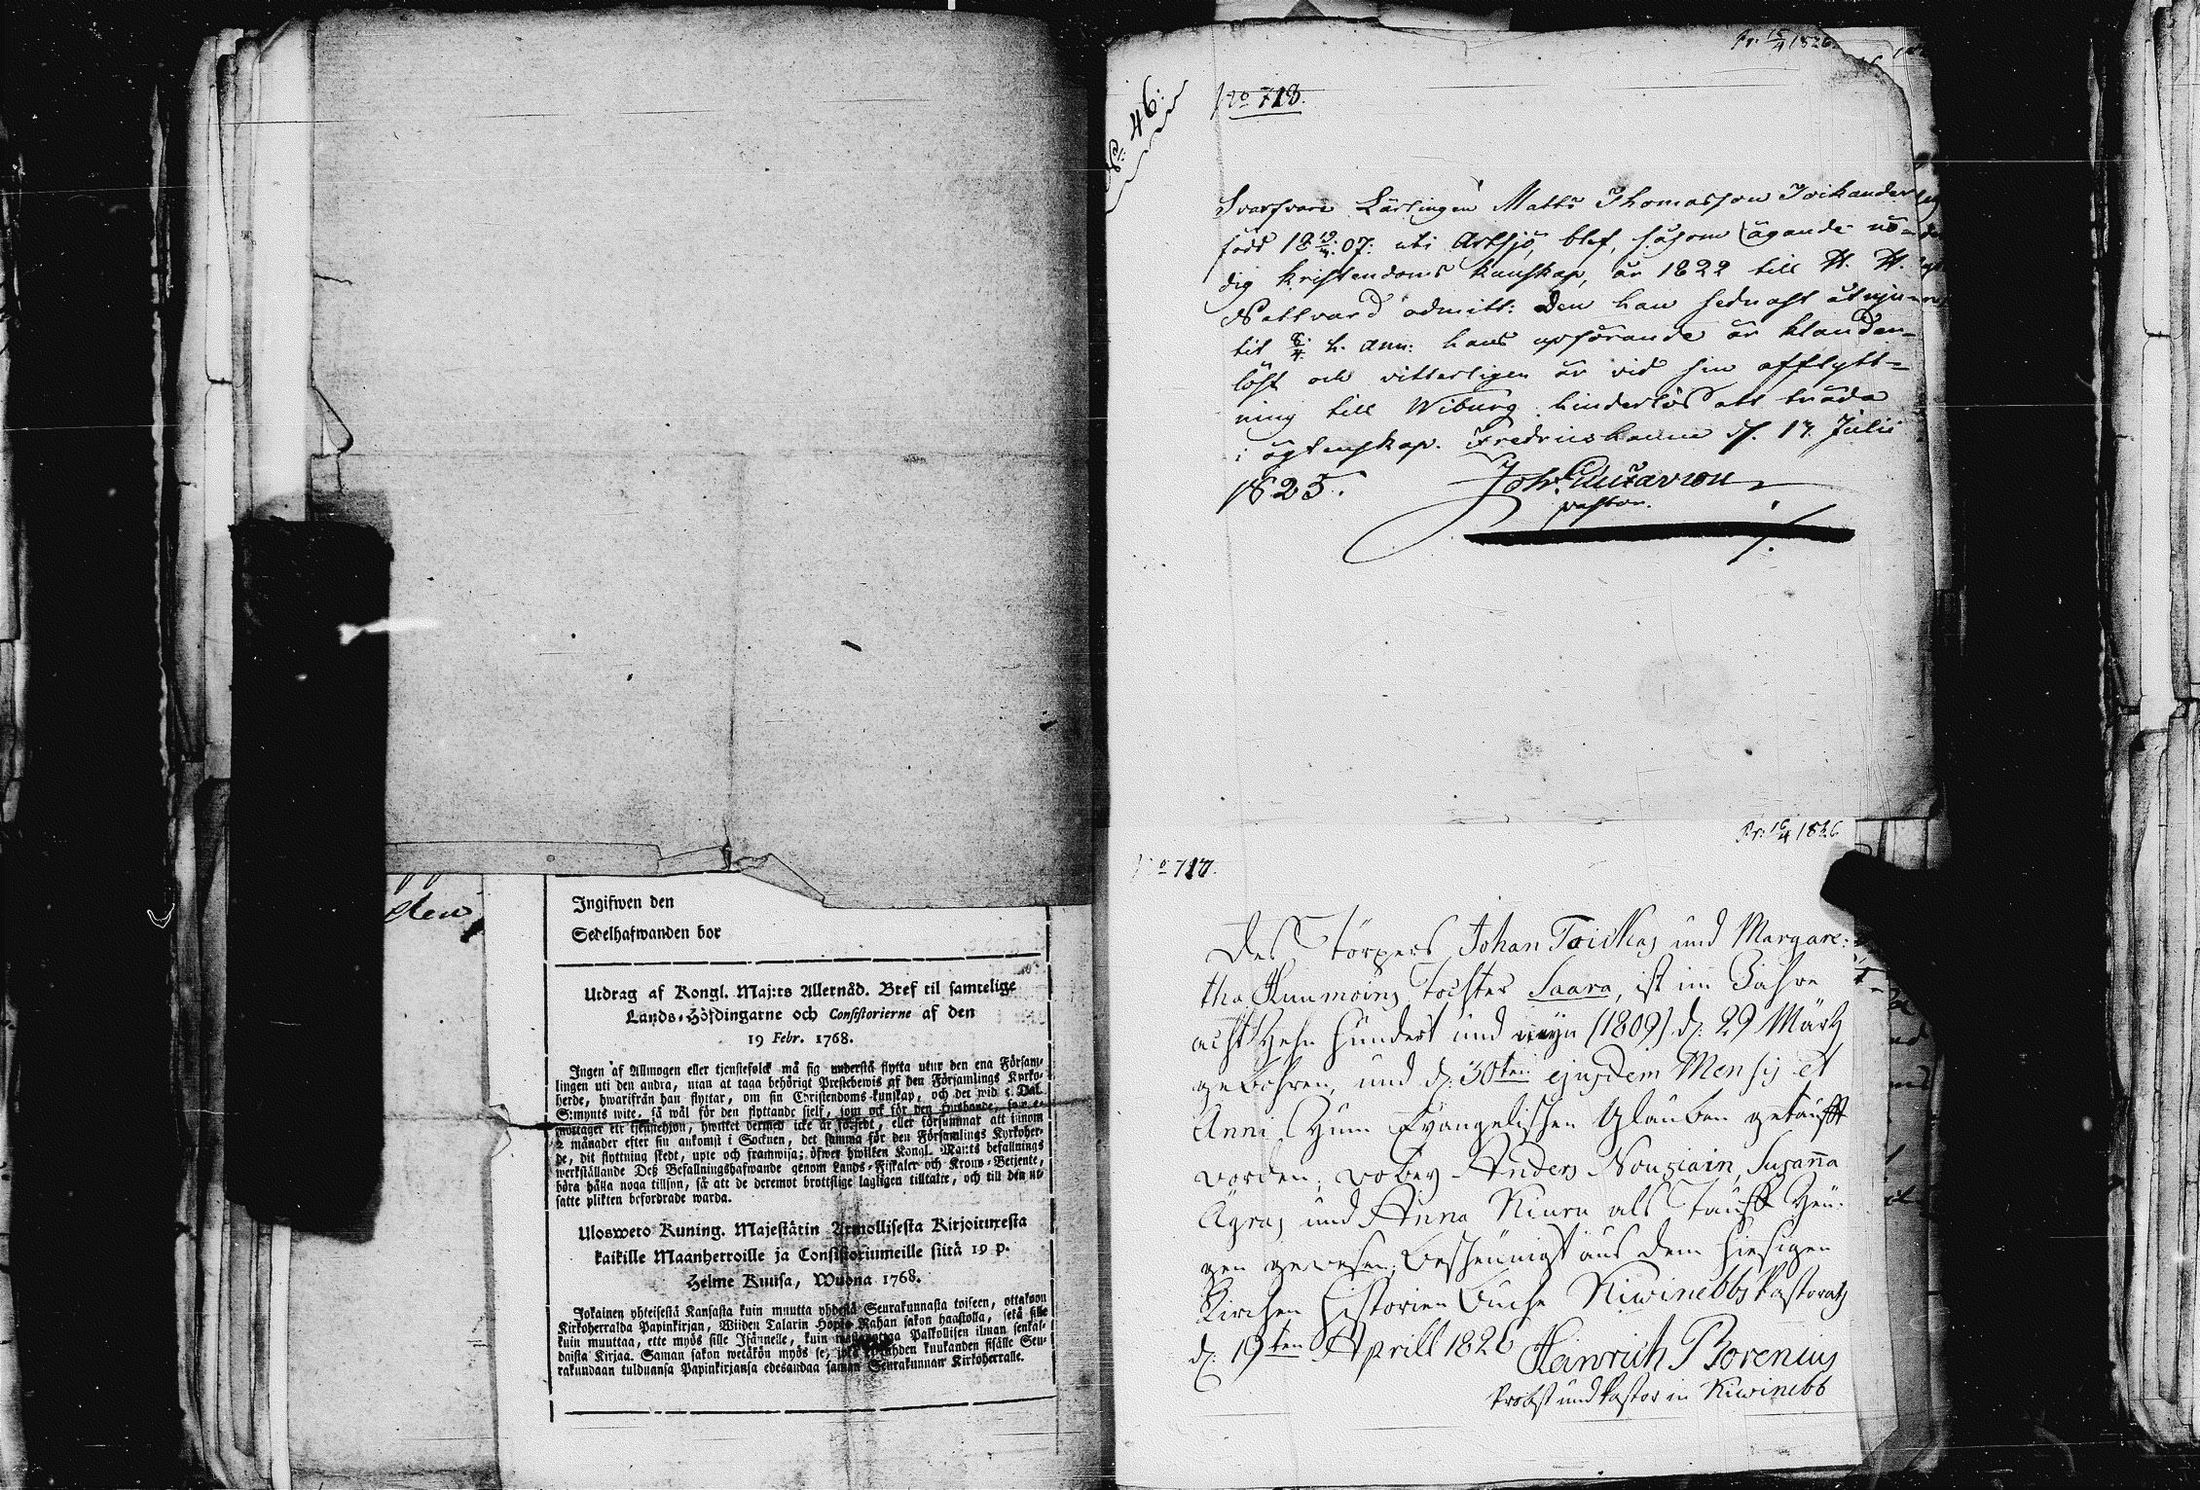 Ingifwen den
Sedelhafwanden bor
Utdrag af Kongl. Maj:ts Allernåd. Bref til samtelige
Lands-Höfdingarne och Consistorierne af den
19 Febr. 1768.
Ingen af Allmogen eller tjenstefolck må sig understå flytta utur den ena Försam-
lingen uti den andra, utan at taga behörigt Prestebewis af den Församlings Kyrko-
herde, hwarifrån han flyttar, om sin Christendoms-kunskap, och det wid 5 Dal.
Simynts wite, så wäl för den flyttande sjelf, som ock för den
mottager ett tjenstehjon, hwilket dermed icke är försedt, eller försummar att innom
2 månader efter sin ankomst i Socknen, det samma för den Församlings Kyrkoher-
de, dit flyttning skedt, upte och framwisa; öfwer hwilken Kongl. Maj:ts befallnings
werkställande Deß Befallningshafwande genom Lands-Fiskaler och Krono-Betjente,
böra hålla noga tillsyn, så att de deremot brottslige lagligen tilltalte, och till den ut-
satte plikten befordrade warda.
Ulosweto Kuning. Majestätin Armollisesta Kirjoituxesta
kaikille Maanherroille ja Consistoriumeille siitä 19 p.
Helme Kuusa, Wuona 1768.
Jokainen yhteisestä Kansasta kuin muutta yhdestä Seurakunnasta toiseen, ottakoon
Kirkoherralda Papinkirjan, Wiiden Talarin Hopia Rahan sakon haastolla, sekä sille
kuin muuttaa, ette myös sille Isännelle, kuin wastanottaa Palkollisen ilman senkal-
daista Kirjaa. Saman sakon wetäkön myös se, joka kuukauden sisälle Seu-
rakundaan tulduansa Papinkirjansa edesandaa saman Seurakunnan Kirkoherralle.
46:
Pr. 15/4 1826
No 718.
Svarfvare Lärlingen Matts Thomasson Toikander
född 18 19/4 07. uti Artsjö, blef, såsom ägande nö-
dig kristendoms kunskap, år 1822 till H. H.
Nattvard admitt: den han sednast åtnju-
tit 8/4 h. ann: hans upförande är klander-
löst och vitterligen är vid sin afflytt-
ning till Wiburg hinderlös att träda
i ägtenskap. Fredricshamn d. 17 Julii
1825. Joh. Gustavson
pastor.
Pr: 16/4 1826
No 717.
Des Törpers Johan Toickas und Margare-
tha Kunmoins Tochter Saara, ist im Jahre
acht Zehn hundert und neyn (1809) d. 29 Märtz
gebohren, und d. 30ten ejusdem Mensis et
Anni Zum Evangelischen Glauben getaufft
worden; wobey Anders Nougiain, Susanna
Ägras und Anna Kiuru als Tauff Zeu-
gen gewesen; bescheinigt aus dem hiesigen
Kirchen Historien buche Kiwinebbs Pastorats
d. 19ten Aprill 1826 Heinrich Borenius
Probst und Pastor in Kiwinebb